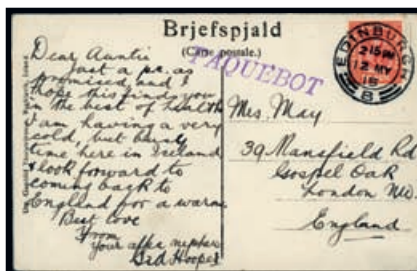 Brjefspjald
(Carte postale.)
PAQUEBOT
EDINBURGH
2 15 PM
12 MY
B
Dear Auntie
Just a p.c. as
promised and I
hope this finds you
in the best of health
I am having a very
cold, but
time here in Iceland
& look forward to
coming back to
England for a warm
Best love
from
your affec nephew
Sid Hooper
Mrs. May
39 Mansfield Rd
Gospel Oak
London NW.
England